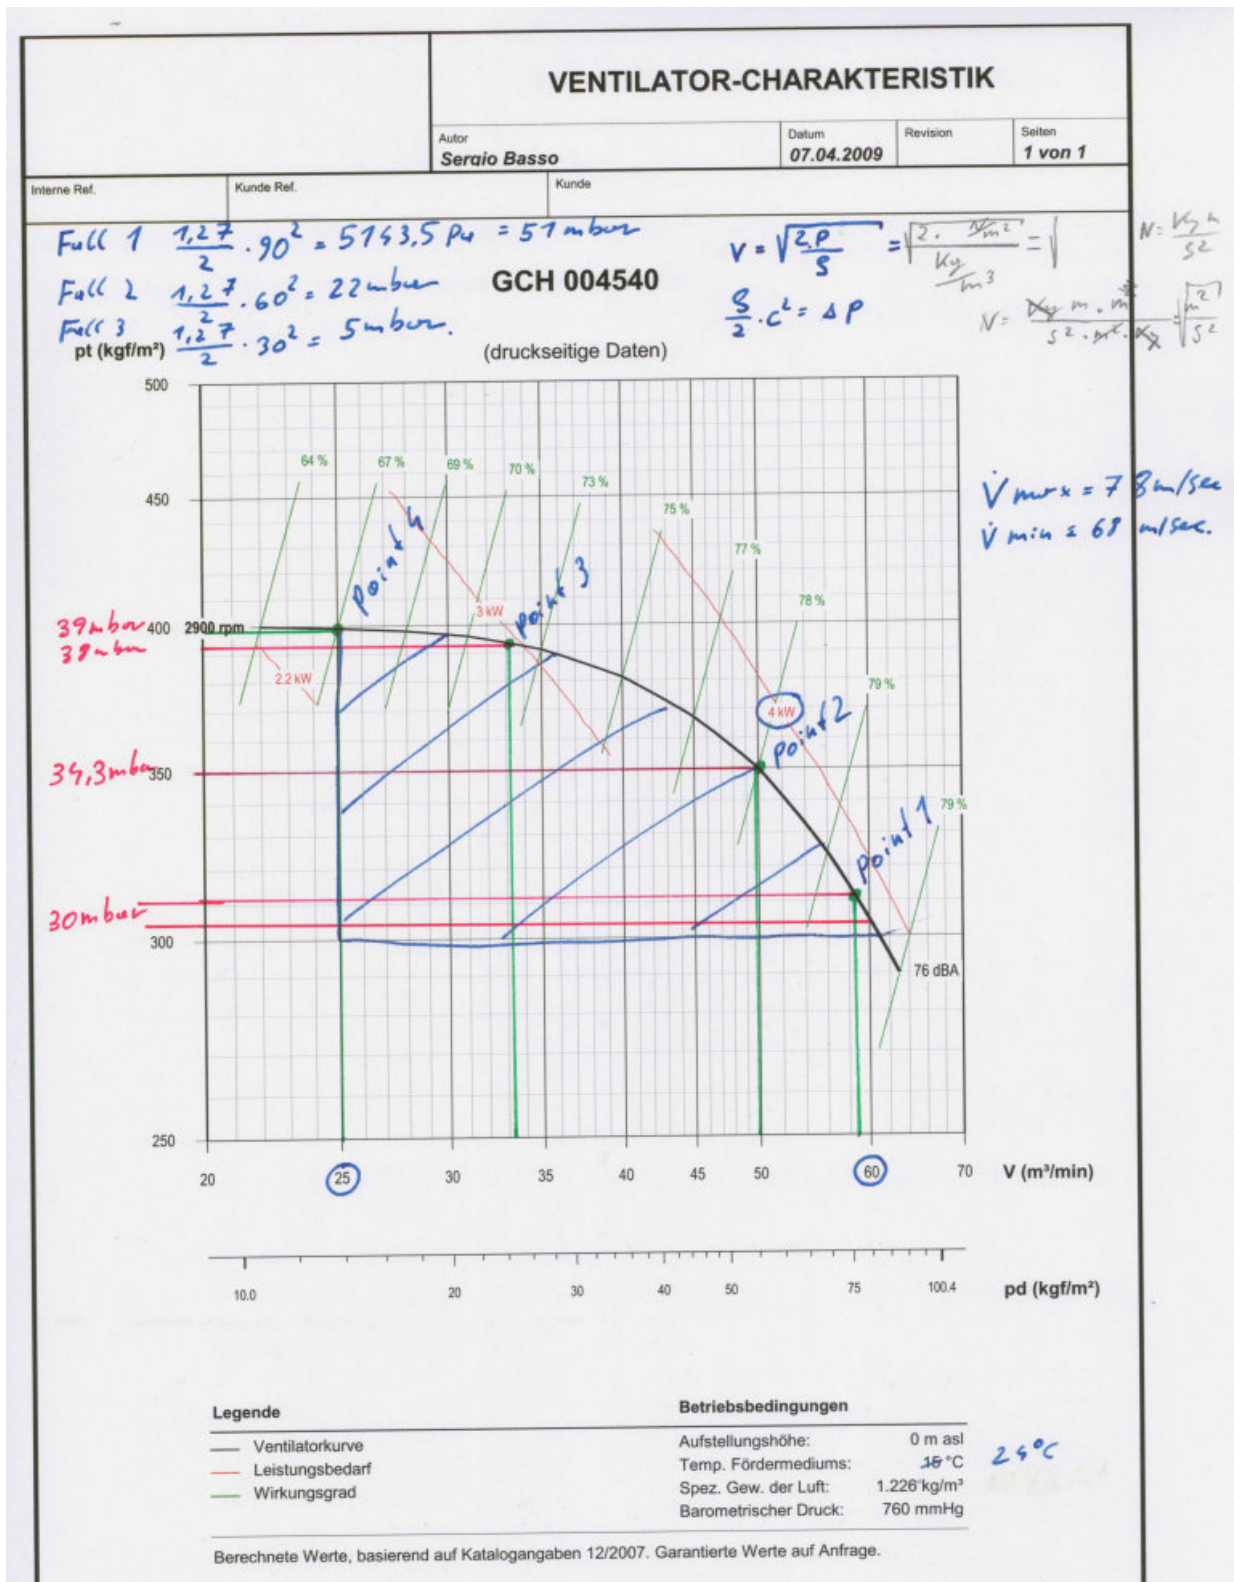 VENTILATOR-CHARAKTERISTIK
Autor
Sergio Basso
Datum
07.04.2009
Revision
Seiten
1 von 1
Interne Ref.
Kunde Ref.
Kunde
Fall 1 1,27/2 · 90² = 5143,5 Pa = 51 mbar
Fall 2 1,27/2 · 60² = 22 mbar
Fall 3 1,27/2 · 30² = 5 mbar.
V = √(2·P/ρ) = √(2· N/m² / Kg/m³) = √
N = Kg m/s²
ρ/2 · c² = Δ P
GCH 004540
(druckseitige Daten)
pt (kgf/m²)
500
450
400
350
300
250
64 %
67 %
69 %
70 %
73 %
75 %
77 %
78 %
79 %
79 %
V̇ max = 78 m/sec
V̇ min = 68 m/sec.
39 mbar
38 mbar
34,3 mbar
30 mbar
2900 rpm
2.2 kW
3 kW
4 kW
Point 4
Point 3
Point 2
Point 1
76 dBA
20 25 30 35 40 45 50 60 70 V (m³/min)
10.0 20 30 40 50 75 100.4 pd (kgf/m²)
Legende
Ventilatorkurve
Leistungsbedarf
Wirkungsgrad
Betriebsbedingungen
Aufstellungshöhe: 0 m asl
Temp. Fördermediums: 15 °C
Spez. Gew. der Luft: 1.226 kg/m³
Barometrischer Druck: 760 mmHg
Berechnete Werte, basierend auf Katalogangaben 12/2007. Garantierte Werte auf Anfrage.